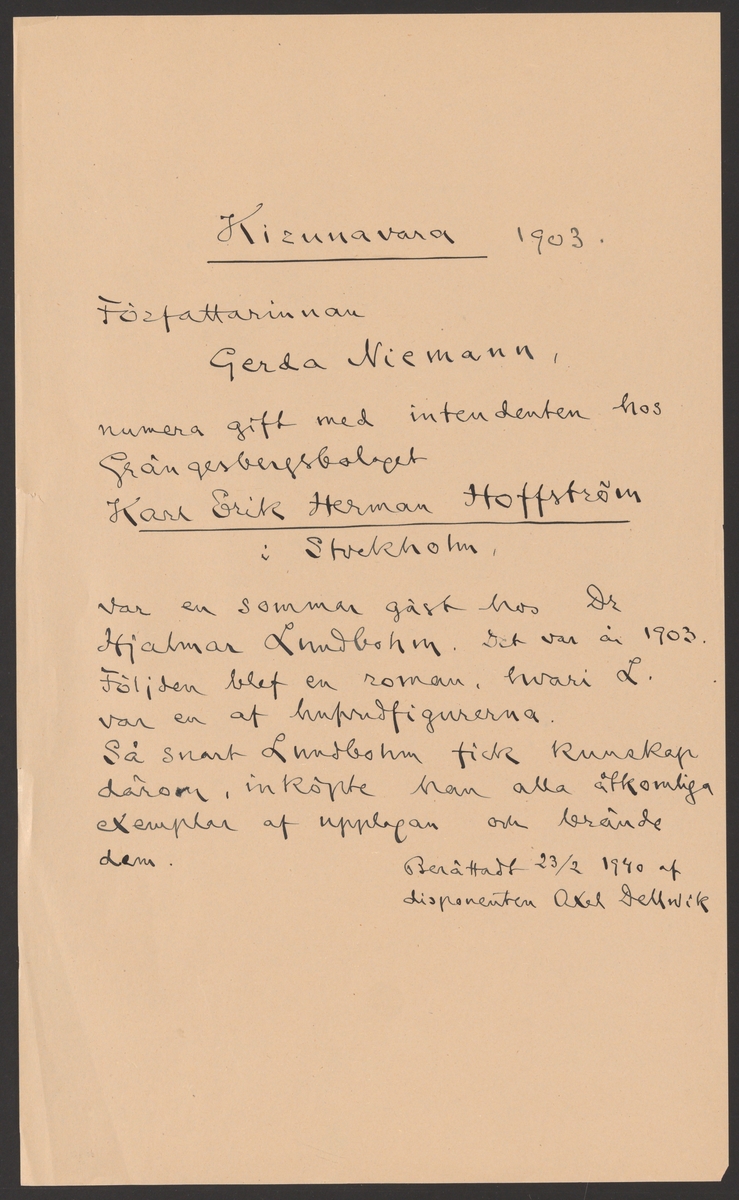 Kirunavara 1903.
Författarinnan
Gerda Niemann,
numera gift med intendenten hos
Grängesbergsbolaget
Karl Erik Herman Hoffström
i Stockholm,
var en sommar gäst hos Dr
Hjalmar Lundbohm. Det var år 1903.
Följden blef en roman, hvari L.
var en af hufvudfigurerna.
Så snart Lundbohm fick kunskap
därom, inköpte han alla åtkomliga
exemplar af upplagan och brände
dem.
Berättadt 23/2 1940 af
disponenten Axel Dellwik